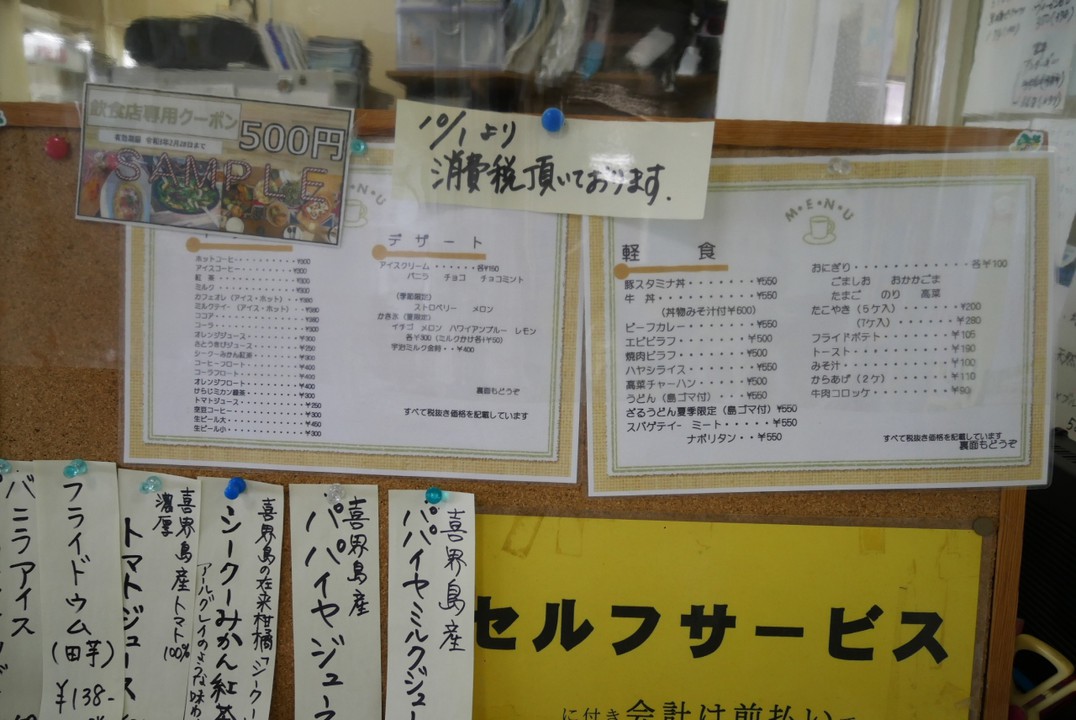 飲食店専用クーポン
500円
有効期間 令和3年2月28日まで
SAMPLE
10/1より
消費税頂いております.
MENU
デザート
ホットコーヒー ¥300
アイスコーヒー ¥300
紅茶 ¥300
ミルク ¥300
カフェオレ(アイス・ホット)
ミルクティ(アイス・ホット)
ココア
コーラ ¥300
オレンジジュース ¥300
シークーみかん紅茶
コーヒーフロート ¥400
コーラフロート ¥400
オレンジフロート ¥400
トマトジュース ¥250
生ビール大 ¥450
生ビール小 ¥300
アイスクリーム 各¥150
バニラ チョコ チョコミント
(季節限定)
ストロベリー メロン
かき氷(夏限定)
イチゴ メロン ハワイアンブルー レモン
各¥300(ミルクかけ各+¥50)
宇治ミルク金時 ¥400
裏面もどうぞ
すべて税抜き価格を記載しています
MENU
軽食
豚スタミナ丼 ¥550
牛丼 ¥550
(丼物みそ汁付¥600)
ビーフカレー ¥550
エビピラフ ¥500
焼肉ピラフ ¥500
ハヤシライス ¥550
高菜チャーハン ¥500
うどん(島ゴマ付) ¥550
ざるうどん夏季限定(島ゴマ付) ¥550
スパゲティー ミート ¥550
ナポリタン ¥550
おにぎり 各¥100
ごましお おかかごま
たまご のり 高菜
たこやき(5ケ入) ¥200
(7ケ入) ¥280
フライドポテト ¥105
トースト ¥190
みそ汁 ¥100
からあげ(2ケ) ¥110
牛肉コロッケ ¥90
すべて税抜き価格を記載しています
裏面もどうぞ
バニラアイス
フライドウム
(田芋)
¥138-
喜界島産トマト100%
濃厚
トマトジュース
喜界島の在来柑橘「シークー
シークーみかん紅茶
アールグレイのような味わ
喜界島産
パパイヤジュース
喜界島産
パパイヤミルクジュー
セルフサービス
に付き会計は前払い